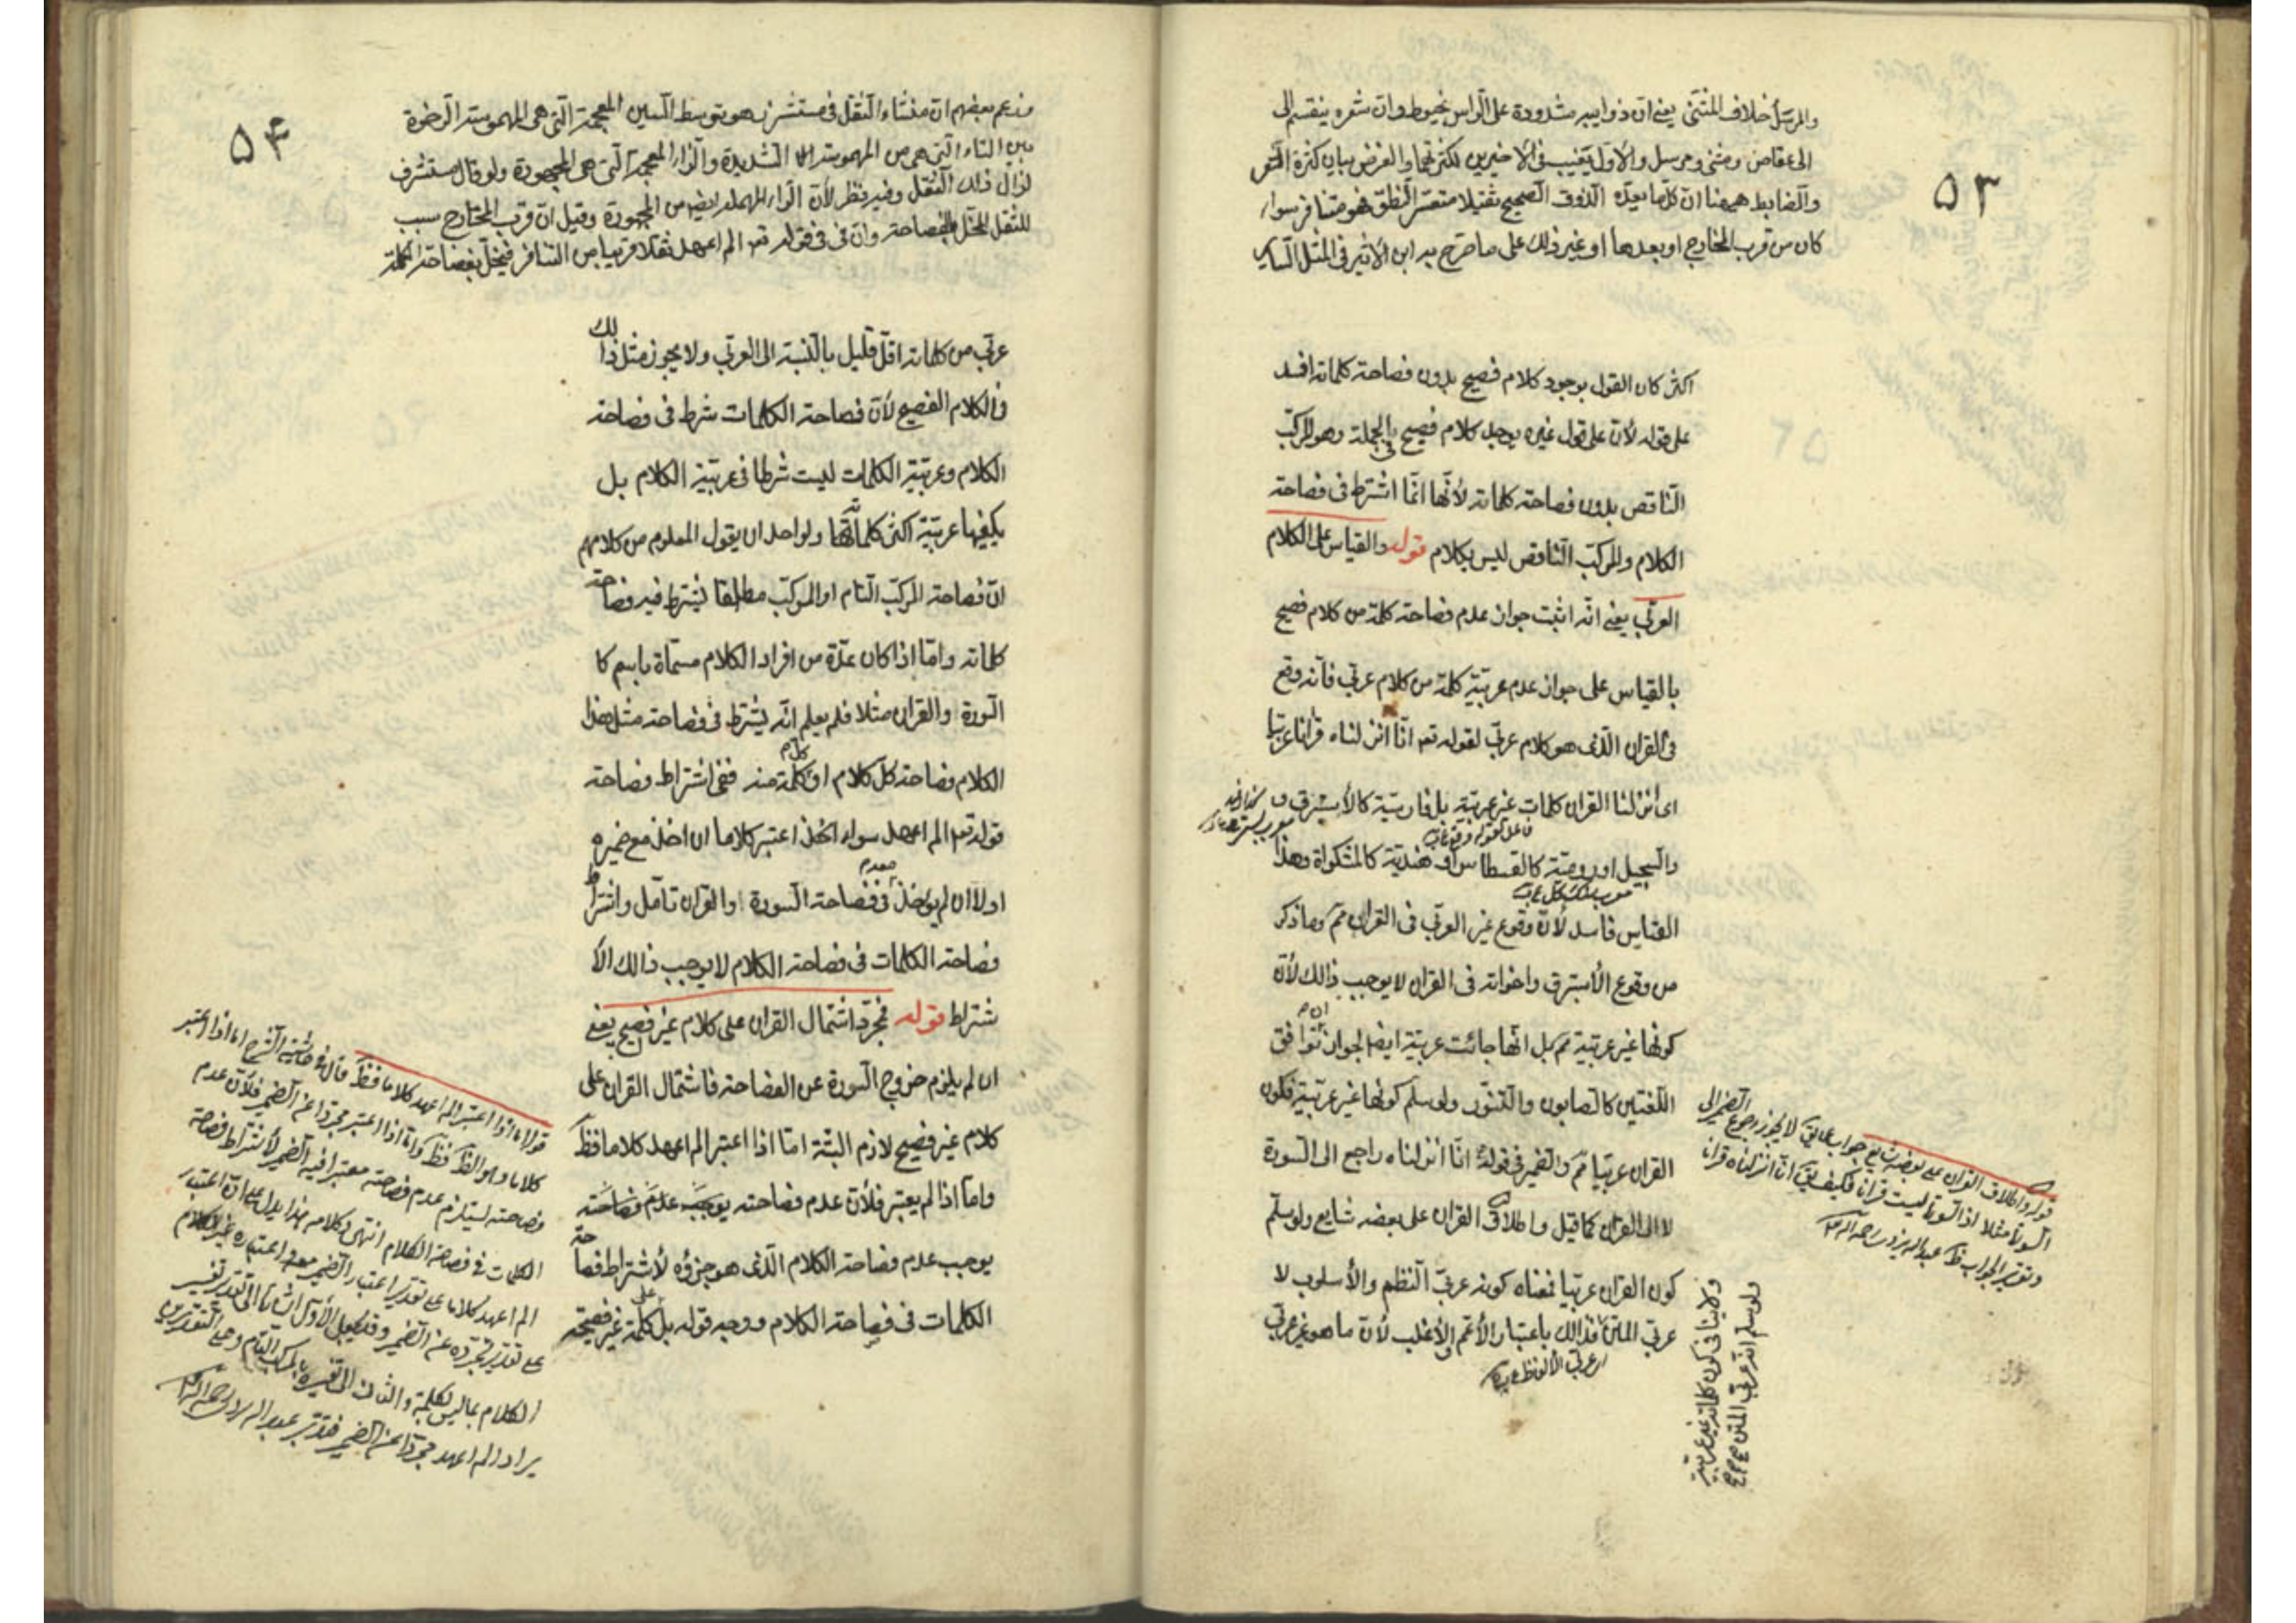 ۵۳
والمرسل خلاف المثنى يعنى ان ذوايبه مشدودة على الراس بخيوط وان شعره ينقسم الى
الى عقاص ومثنى ومرسل والاول يغيب فى الاخيرين لكثرتهما والغرض بيان كثرة الشعر
والضابط ههنا ان كلما يعده الذوق الصحيح ثقيلا متعسر النطق فهو متنافر سواء
كان من قرب المخارج او بعدها او غير ذلك على ما صرح به ابن الاثير فى المثل الساير
اكثر كان القول بوجود كلام فصيح بدون فصاحة كلماته افسد
على قوله لأن على قول غيره يوجد كلام فصيح فى الجملة وهو المركب
الناقص بدون فصاحة كلماته لأنها انما اشترط فى فصاحة
الكلام والمركب الناقص ليس بكلام قوله والقياس على الكلام
العربى يعنى انه اثبت جواز عدم فصاحة كلمة من كلام فصيح
بالقياس على جواز عدم عربية كلمة من كلام عربى فانه وقع
فى القران الذى هو كلام عربى لقوله تعـ انا انزلناه قرانا عربيا
اى انزلنا القران كلمات غير عربية بل فارسية كالأستبرق
والسجيل او رومية كالقسطاس او هندية كالمشكواة وهذا
القياس فاسد لأن وقوع غير العربى فى القران مم وما ذكر
من وقوع الأستبرق واخواته فى القران لا يوجب ذالك لأن
كونها غير عربية مم بل انها جائت عربية ايضا لجواز ان توافق
اللغتين كالصابون والتنور ولو سلم كونها غير عربية فكون
القران عربيا مم والضمير فى قوله انا انزلناه راجع الى السورة
لا الى القران كما قيل واطلاق القران على بعضه شايع ولو سلم
كون القران عربيا فمعناه كونه عربى النظم والأسلوب لا
عربى المتن فذالك باعتبار الأعم الأغلب لأن ما هو غير عربى
قوله واطلاق القران على بعضه شايع جواب عما يق لا يجوز رجوع الضمير الى
السورة مثلا اذ السورة ليست قرانا فكيف يق انا انزلناه قرانا
وتقرير الجواب ظـ عبد الله يزدى رحمه الله
ولو سلم انه عربى المتن
ولا ينافى كون كلماته غير عربية
۵۴
وزعم بعضهم ان منشاء الثقل فى مستشزر هو توسط الشين المعجمة التى هى المهموسة الرخوة
بين التاء التى هى من المهموسة الشديدة والزاء المعجمة التى هى المجهورة ولو قال مستشرف
لزال ذالك الثقل وفيه نظر لأن الراء المهملة ايضا من المجهورة وقيل ان قرب المخارج سبب
للثقل المخل بالفصاحة وان فى قوله تعـ الم اعهد ثقلا قريبا من التنافر فيخل بفصاحة الكلمة
عربى من كلماته اقل قليل بالنسبة الى العربى ولا يجوز مثل ذالك
فى الكلام الفصيح لأن فصاحة الكلمات شرط فى فصاحة
الكلام وعربية الكلمات ليست شرطا فى عربية الكلام بل
يكفيها عربية اكثر كلماتها ولواحد ان يقول المعلوم من كلامهم
ان فصاحة المركب التام او المركب مطلقا يشترط فيه فصاحة
كلماته واما اذا كان عدة من افراد الكلام مسماة باسم كا
السورة والقران مثلا فلم يعلم انه يشترط فى فصاحة مثل هذا
الكلام فصاحة كل كلام او كل كلمة منه ففى اشتراط فصاحة
قوله تعـ الم اعهد سواء اعتبر كلاما ان اخذ مع ضميره
اولا ان لم يؤخذ فى فصاحة السورة او القران تأمل واشتراط
فصاحة الكلمات فى فصاحة الكلام لا يوجب ذالك الأ
شتراط قوله فمجرد اشتمال القران على كلام غير فصيح يعنى
ان لم يلزم خروج السورة عن الفصاحة فاشتمال القران على
كلام غير فصيح لازم البتة اما اذا اعتبر الم اعهد كلاما فظـ
واما اذا لم يعتبر فلأن عدم فصاحته يوجب عدم فصاحته
يوجب عدم فصاحة الكلام الذى هو جزؤه لأشتراط فصاحة
الكلمات فى فصاحة الكلام ووجه قوله بل على كلمة غير فصيحة
قوله اما اذا اعتبر الم اعهد كلاما فظـ قال فى حاشية الشرح اما اذا اعتبر
كلاما وهو الظـ فظـ واما اذا اعتبر مجردا عن الضمير فلأن عدم
فصاحته يستلزم عدم فصاحته معتبرا فيه الضمير لأشتراط فصاحة
الكلمات فى فصاحة الكلام انتهى وكلامه هذا يدل على ان اعتبار
الم اعهد كلاما على تقدير اعتبار الضمير معه واعتباره غير الكلام
على تقدير تجرده عن الضمير
الكلام بما ليس بكلمة والثانى الى تفسيره بالمركب التام وعلى التقديرين
يراد الم اعهد مجردا عن الضمير فتدبر عبد الله رحمه الله